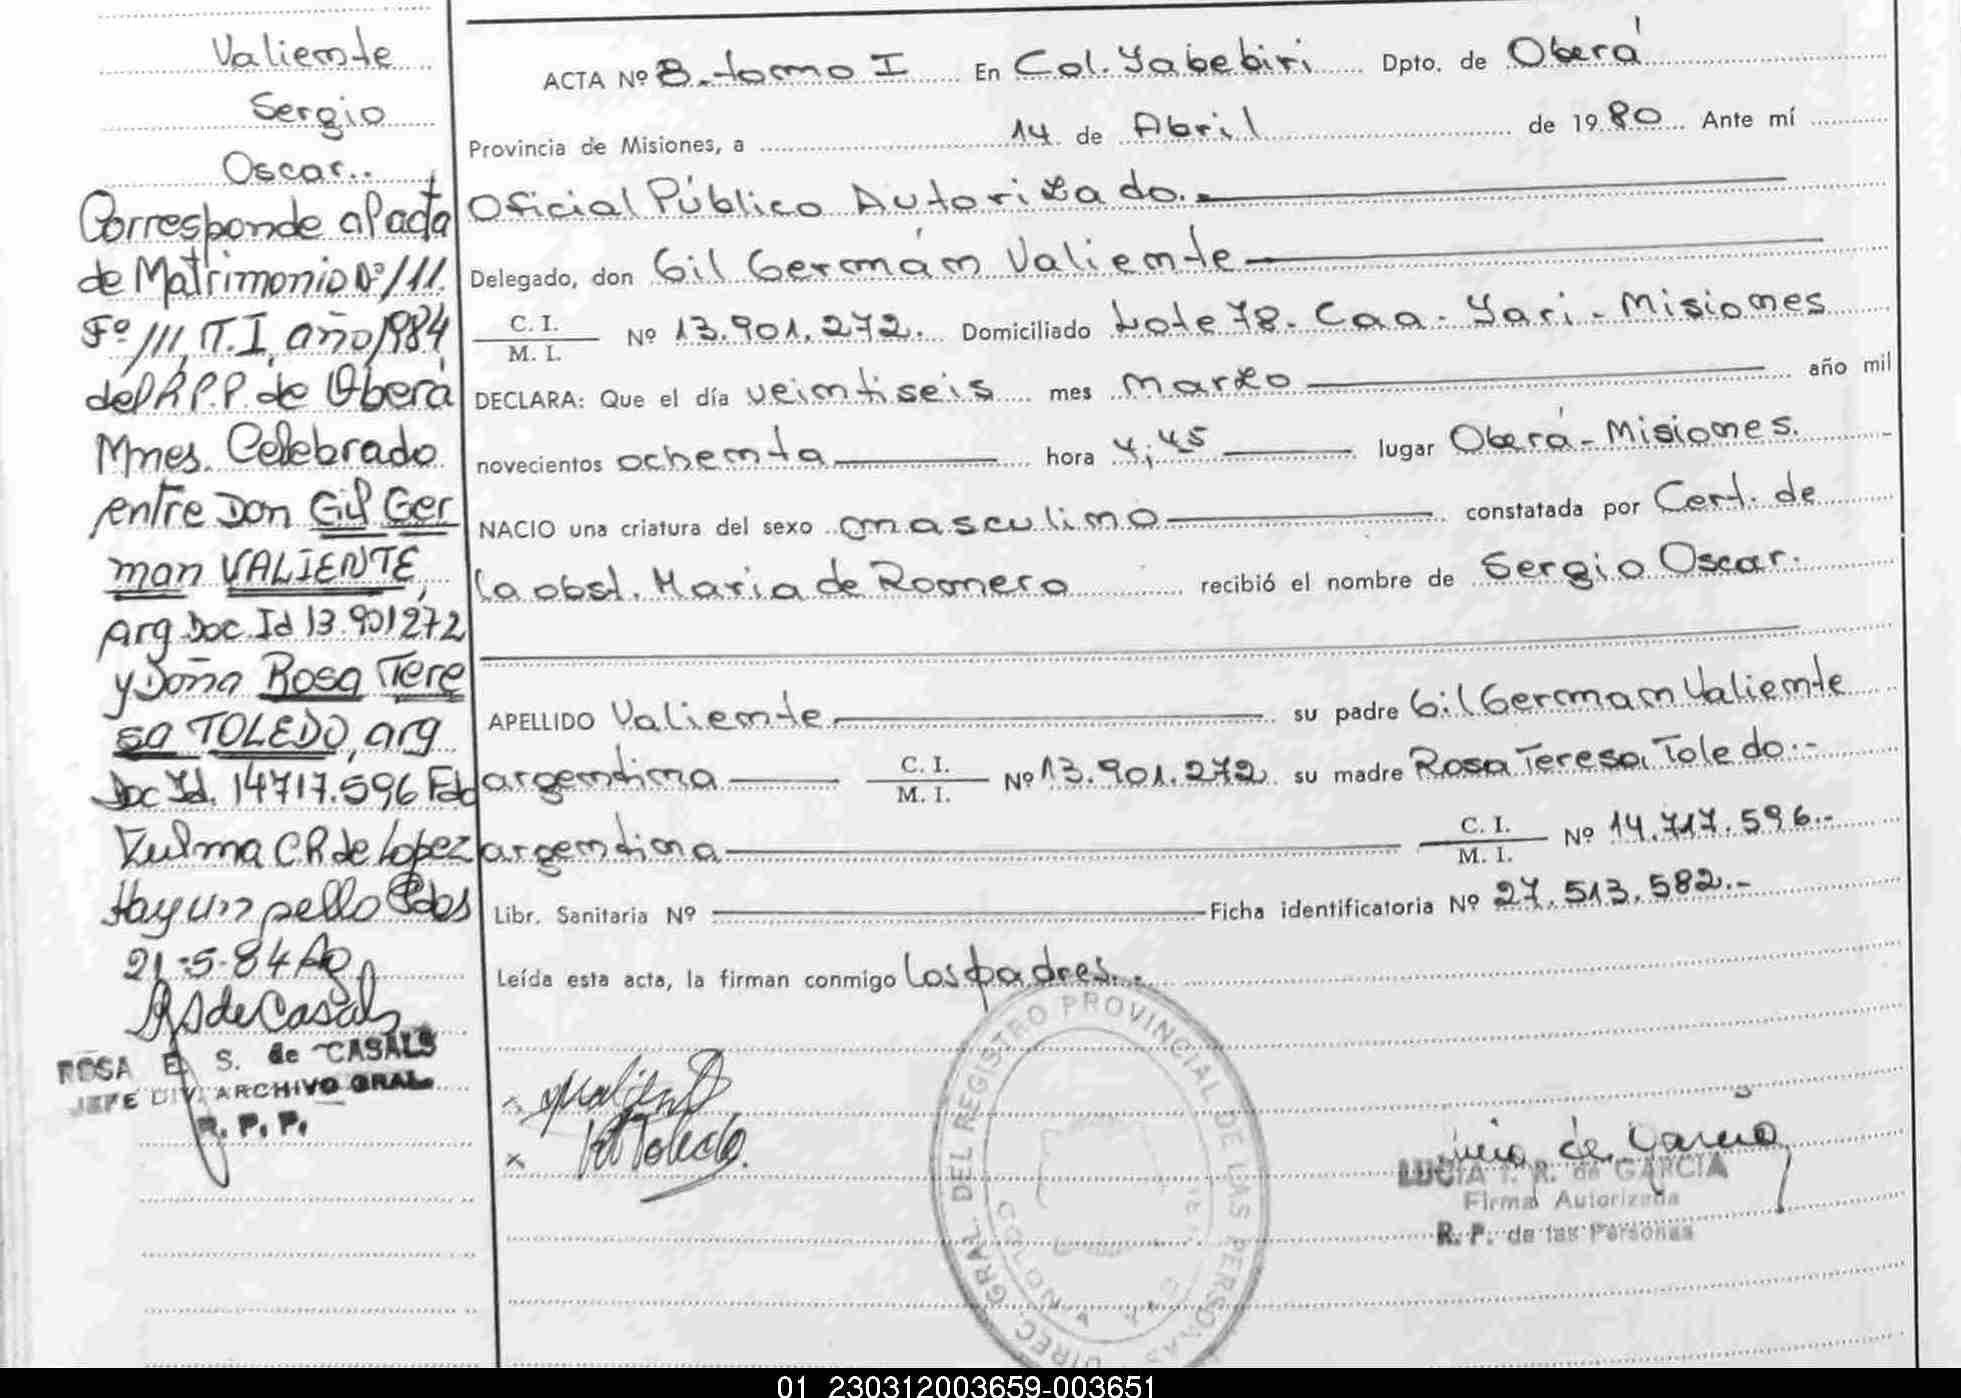 Valiente
Sergio
Oscar..
Corresponde al acta
de Matrimonio Nº 111.
Fº 111, T.I, año 1984
del R.P.P. de Oberá
Mnes. Celebrado
entre Don Gil Ger
man VALIENTE,
arg Doc. Id 13.901272
y Doña Rosa Tere
sa TOLEDO, arg
Doc Id. 14717.596 Fdo
Zulma C R de Lopez
Hay un sello Pdos
21-5-84
RS de Casals
ROSA E. S. de CASALS
JEFE DIV. ARCHIVO GRAL.
R. P. P.
ACTA Nº 8. tomo I En Col. Yabebiri Dpto. de Oberá
Provincia de Misiones, a 14 de Abril de 1980 Ante mí
Oficial Público Autorizado.
Delegado, don Gil Germán Valiente
C. I.
M. I. Nº 13.901.272. Domiciliado Lote 78. Caa-Yari-Misiones
DECLARA: Que el día veintiseis mes marzo año mil
novecientos ochenta hora 4,45 lugar Oberá-Misiones.
NACIO una criatura del sexo masculino constatada por Cert. de
la obst. Maria de Romero recibió el nombre de Sergio Oscar.
APELLIDO Valiente su padre Gil German Valiente
argentina C. I.
M. I. Nº 13.901.272 su madre Rosa Teresa Toledo.-
argentina C. I.
M. I. Nº 14.717.596.-
Libr. Sanitaria Nº Ficha identificatoria Nº 27.513.582.-
Leída esta acta, la firman conmigo los padres..
DIREC. GRAL. DEL REGISTRO PROVINCIAL DE LAS PERSONAS
x Valiente
x RT Toledo.
Lucia de Garcia
LUCIA T. R. de GARCIA
Firma Autorizada
R. P. de las Personas
01_230312003659-003651